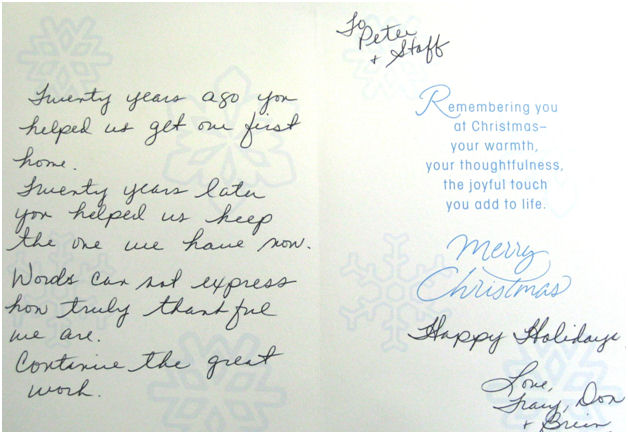 Twenty years ago you
helped us get our first
home.
Twenty years later
you helped us keep
the one we have now.
Words can not express
how truly thankful
we are.
Continue the great
work.
To
Peter
+ Staff
Remembering you
at Christmas–
your warmth,
your thoughtfulness,
the joyful touch
you add to life.
Merry
Christmas
Happy Holidays
Love,
Tracy, Don
+ Brian